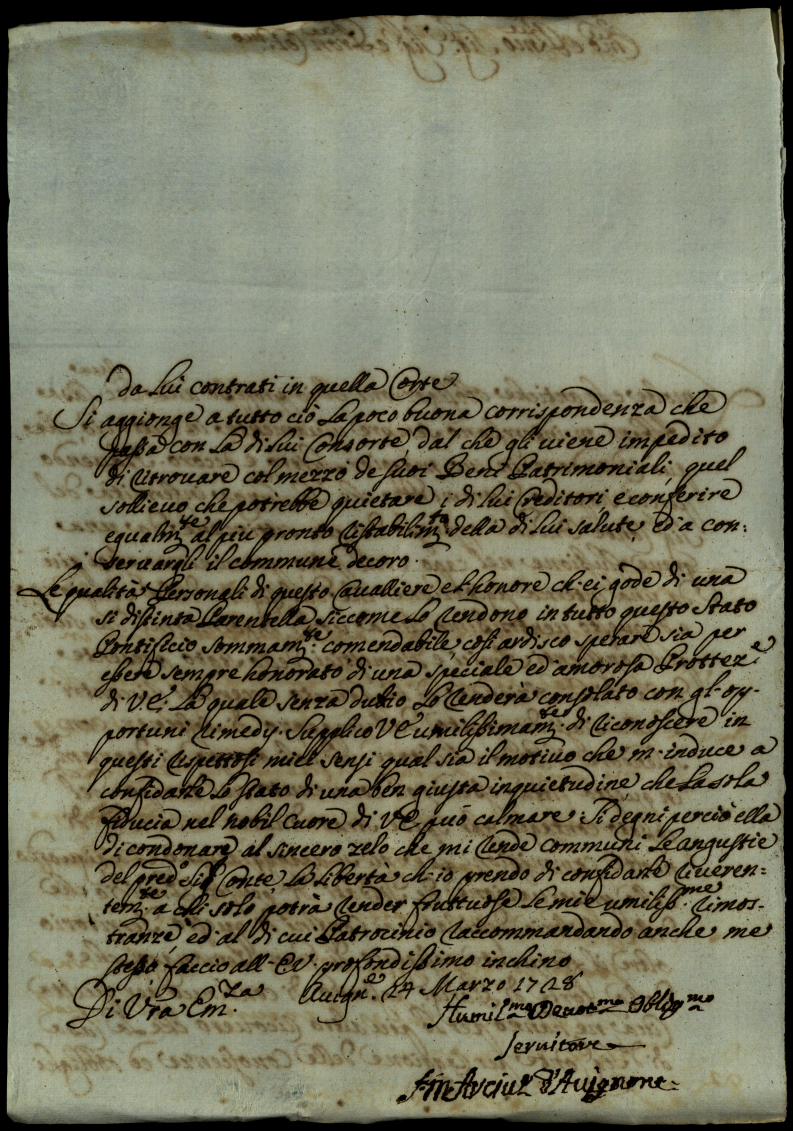 da Lui contrati in quella Corte
Si aggionge a tutto ciò La poco buona corrispondenza che
passa con La di lui Consorte, dal che gli viene impedito
di ritrouare col mezzo de suoi Beni Patrimoniali, quel
sollieuo che potrebbe quietare i di lui Creditori, e conferire
egualm.te al più pronto ristabilim.to della di lui salute, ed a con:
seruargli il commune decoro.
Le qualità Personali di questo Cavalliere e L'honore ch'ei gode di una
si distinta Parentella, siccome Lo rendono in tutto questo Stato
Pontificio sommam.te comendabile, così ardisco sperare sia per
essere sempre honorato di una speciale ed amorosa Prottez.e
di V.E. La quale senza dubio Lo renderà consolato con gl'op-
portuni rimedy. Supplico V.E. umilissimam.te di riconoscere in
questi rispettosi miei sensi qual sia il motivo che m'induce a
confidarle Lo stato di una ben giusta inquietudine, che La sola
fiducia nel nobil Cuore di V.E. può calmare. Si degni perciò ella
di condonare al sincero zelo che mi rende communi Le angustie
del pred.o Sig.r Conte, La libertà ch'io prendo di confidarle riueren=
tem.te a chi solo potrà render fruttuose Le mie umiliss.me rimos-
tranze, ed al di cui Patrocinio raccommandando anche me
stesso faccio all'E.V. profondissimo inchino
Di Vra Em.za Auign.e 24 Marzo 1728
Humil.mo Deuot.mo Obblig.mo
Seruitore
Arciu. d'Auignone